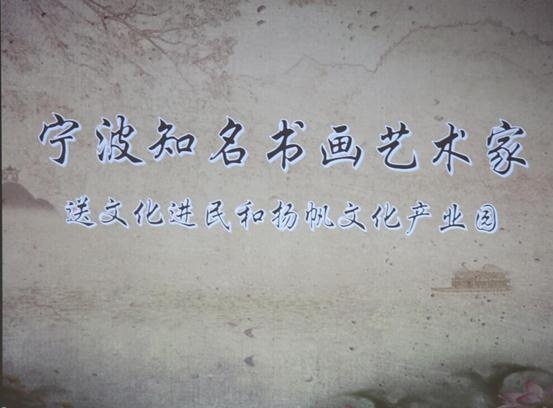 宁波知名书画艺术家
送文化进民和扬帆文化产业园